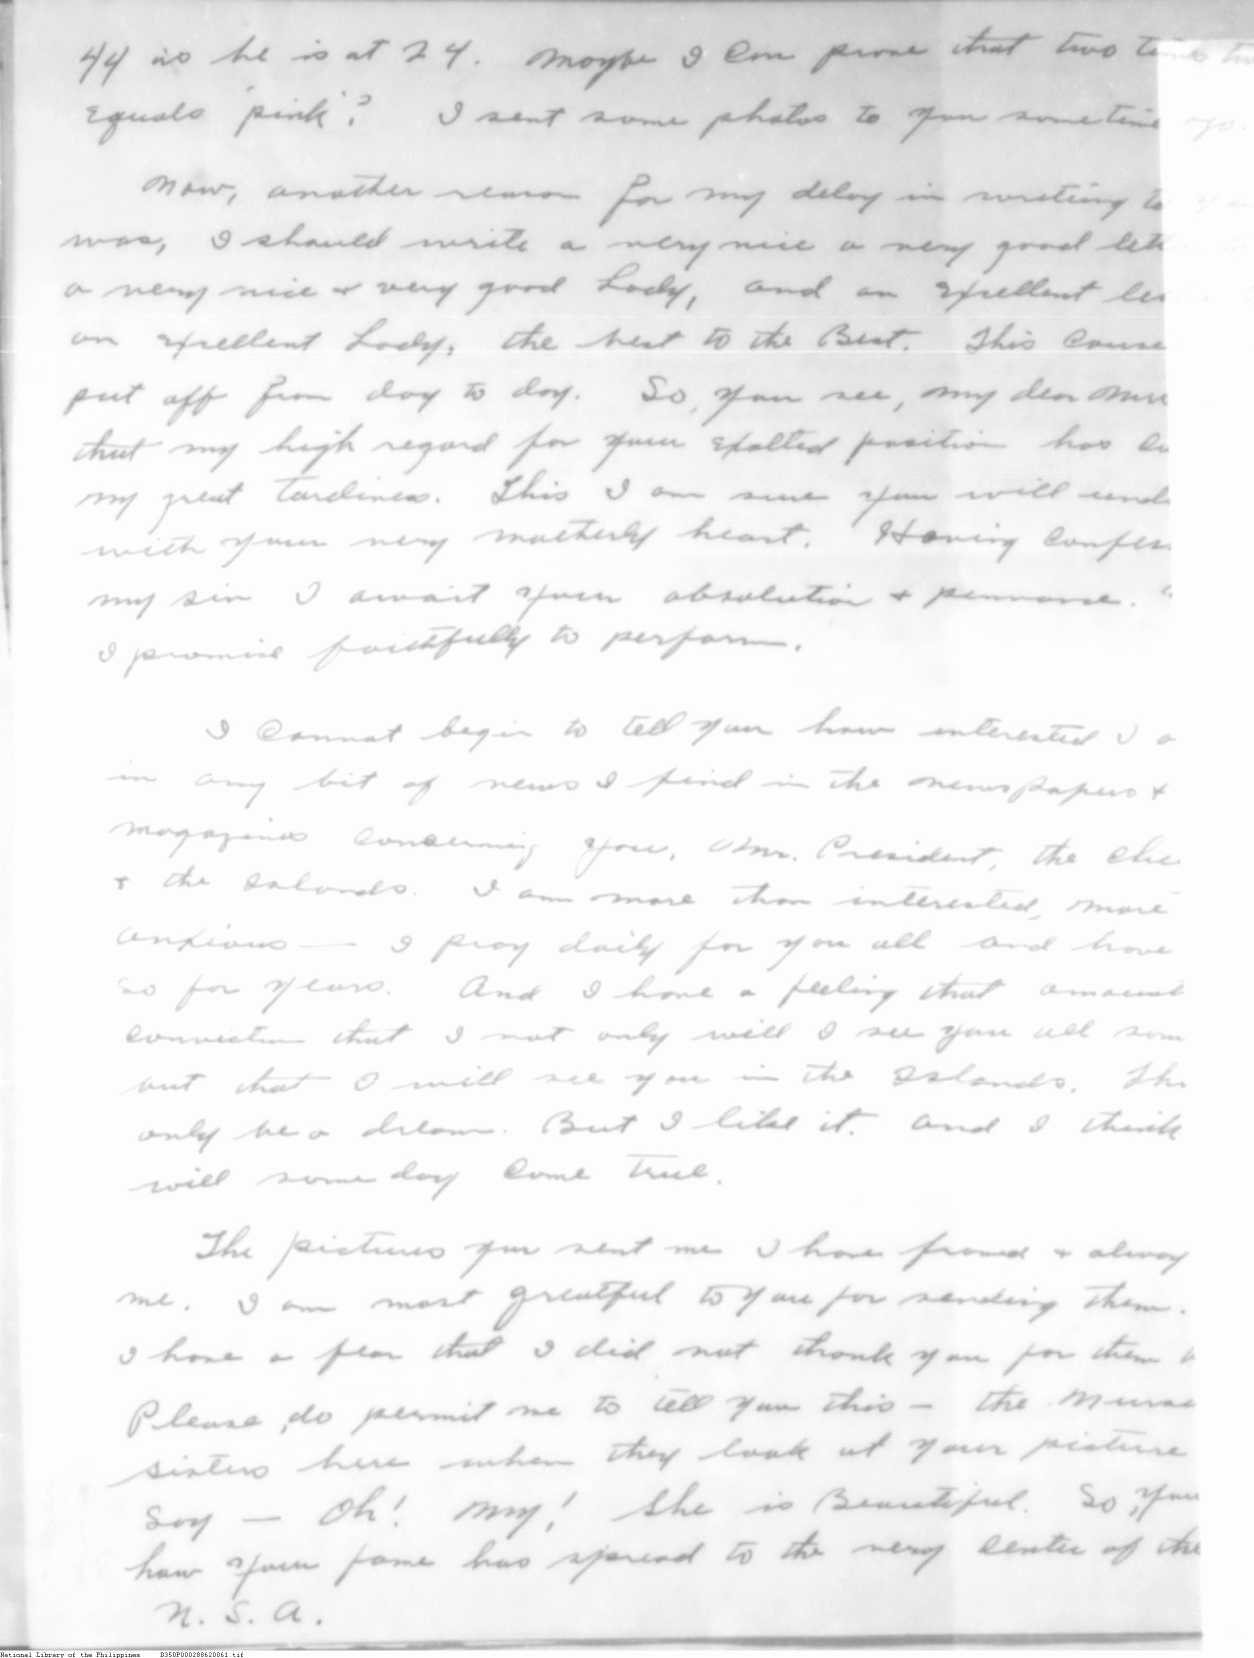 44 as he is at 24. Maybe I can prove that two times two
equals "pink"? I sent some photos to you sometime ago.
Now, another reason for my delay in writing to you
was, I should write a very nice a very good lett
a very nice & very good Lady, and an Excellent let
an Excellent Lady, the best to the Best. This cause
put off from day to day. So, you see, my dear Mrs
that my high regard for your Exalted position has
my great tardiness. This I am sure you will und
with your very motherly heart. Having confes
my sin I await your absolution & pennance.
I promise faithfully to perform.
I cannot begin to tell you how interested I a
in any bit of news I find in the newspapers &
magazines concerning you, Mr. President, the chi
& the Islands. I am more than interested, more
anxious — I pray daily for you all and have
so for years. And I have a feeling that amount
conviction that I not only will I see you all som
but that I will see you in the Islands. Thi
only be a dream. But I like it. And I think
will some day come true.
The pictures you sent me I have framed & alway
me. I am most greatful to you for sending them.
I have a fear that I did not thank you for them
Please, do permit me to tell you this — the Nurse
sisters here when they look at your picture
Say — Oh! My! She is Beautiful. So, you
how your fame has spread to the very center of the
N. S. A.
National Library of the Philippines B350P000288620061.tif